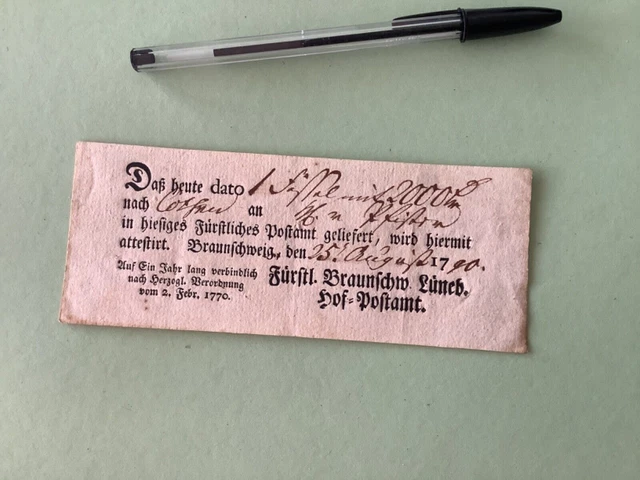 Daß heute dato 1 mit 2000
nach an
in hiesiges Fürstliches Postamt geliefert, wird hiermit
attestirt. Braunschweig, den 25. August 1790.
Auf Ein Jahr lang verbindlich
nach Herzogl. Verordnung
vom 2. Febr. 1770.
Fürstl. Braunschw. Lüneb.
Hof-Postamt.